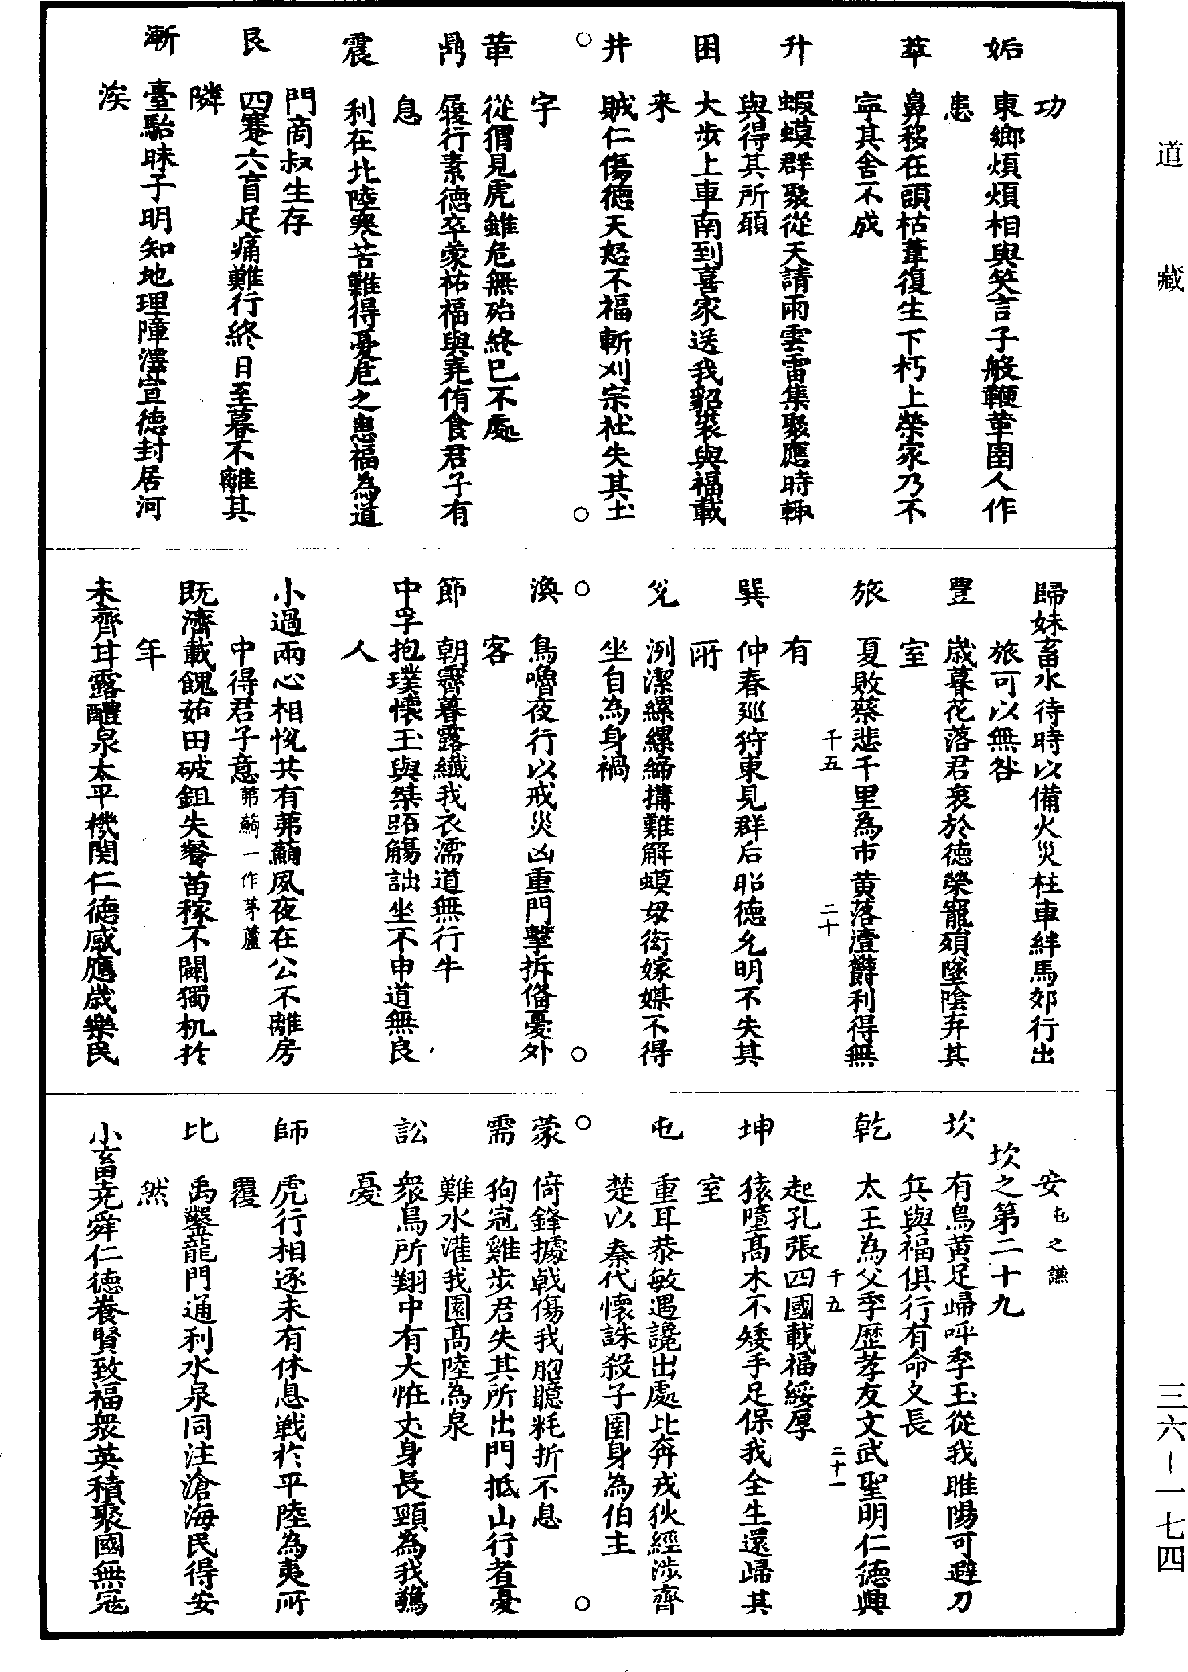 道藏
三六-一七四
功
姤 東鄉煩煩相與笑言子般鞭華圉人作
患
萃 鼻移在頭枯葦復生下朽上榮家乃不
寧其舍不成
升 蝦蟆群聚從天請雨雲雷集聚應時輒
與得其所願
困 大步上車南到喜家送我貂裘與福載
来
井 賊仁傷德天怒不福斬刈宗社失其土
宇
革 從猬見虎雖危無殆終已不處
鼎 履行素德卒蒙祐福與堯侑食君子有
息
震 利在北陸寒苦難得憂危之患福為道
門商叔生存
艮 四蹇六盲足痛難行終日至暮不離其
隣
漸 臺駘昧子明知地理障澤宣德封居河
涘
歸妹畜水待時以備火災柱車絆馬郊行出
旅可以無咎
豐 歲暮花落君衰於德榮寵殞墜陰弃其
室
旅 夏敗蔡悲千里為市黄落澧欝利得無
有
千五 二十
巽 仲春廵狩東見群后昭德允明不失其
所
兌 洌潔縲縲締搆難解蟆母衒嫁媒不得
坐自為身禍
渙 鳥嚕夜行以戒災凶重門擊拆俻憂外
客
節 朝霽暮露纖我衣濡道無行牛
中孚抱璞懷玉與桀跖觴詘坐不申道無良
人
小過兩心相恱共有茀蘜夙夜在公不離房
中得君子意茀蘜一作茅蘆
既濟載餽茹田破鉏失餐苗稼不闢獨机於
年
未齊甘露醴泉太平機関仁德感應歲樂民
安屯之謙
坎之第二十九
坎 有鳥黄足歸呼季玉從我睢陽可避刀
兵與福俱行有命久長
乾 太王為父季歷孝友文武聖明仁德興
起孔張四國載福綏厚
千五 二十一
坤 猿噎高木不矮手足保我全生還歸其
室
屯 重耳恭敏遇讒出處北奔戎狄經涉齊
楚以秦代懷誅殺子圉身為伯主
蒙 倚鋒據戟傷我胸臆耗折不息
需 狗冠雞步君失其所出門抵山行者憂
難水灌我園高陸為泉
訟 衆鳥所翔中有大怪丈身長頸為我驚
憂
師 虎行相逐未有休息戰於平陸為夷所
覆
比 禹鑿龍門通利水泉同注滄海民得安
然
小畜尭舜仁德養賢致福衆英積聚國無寇